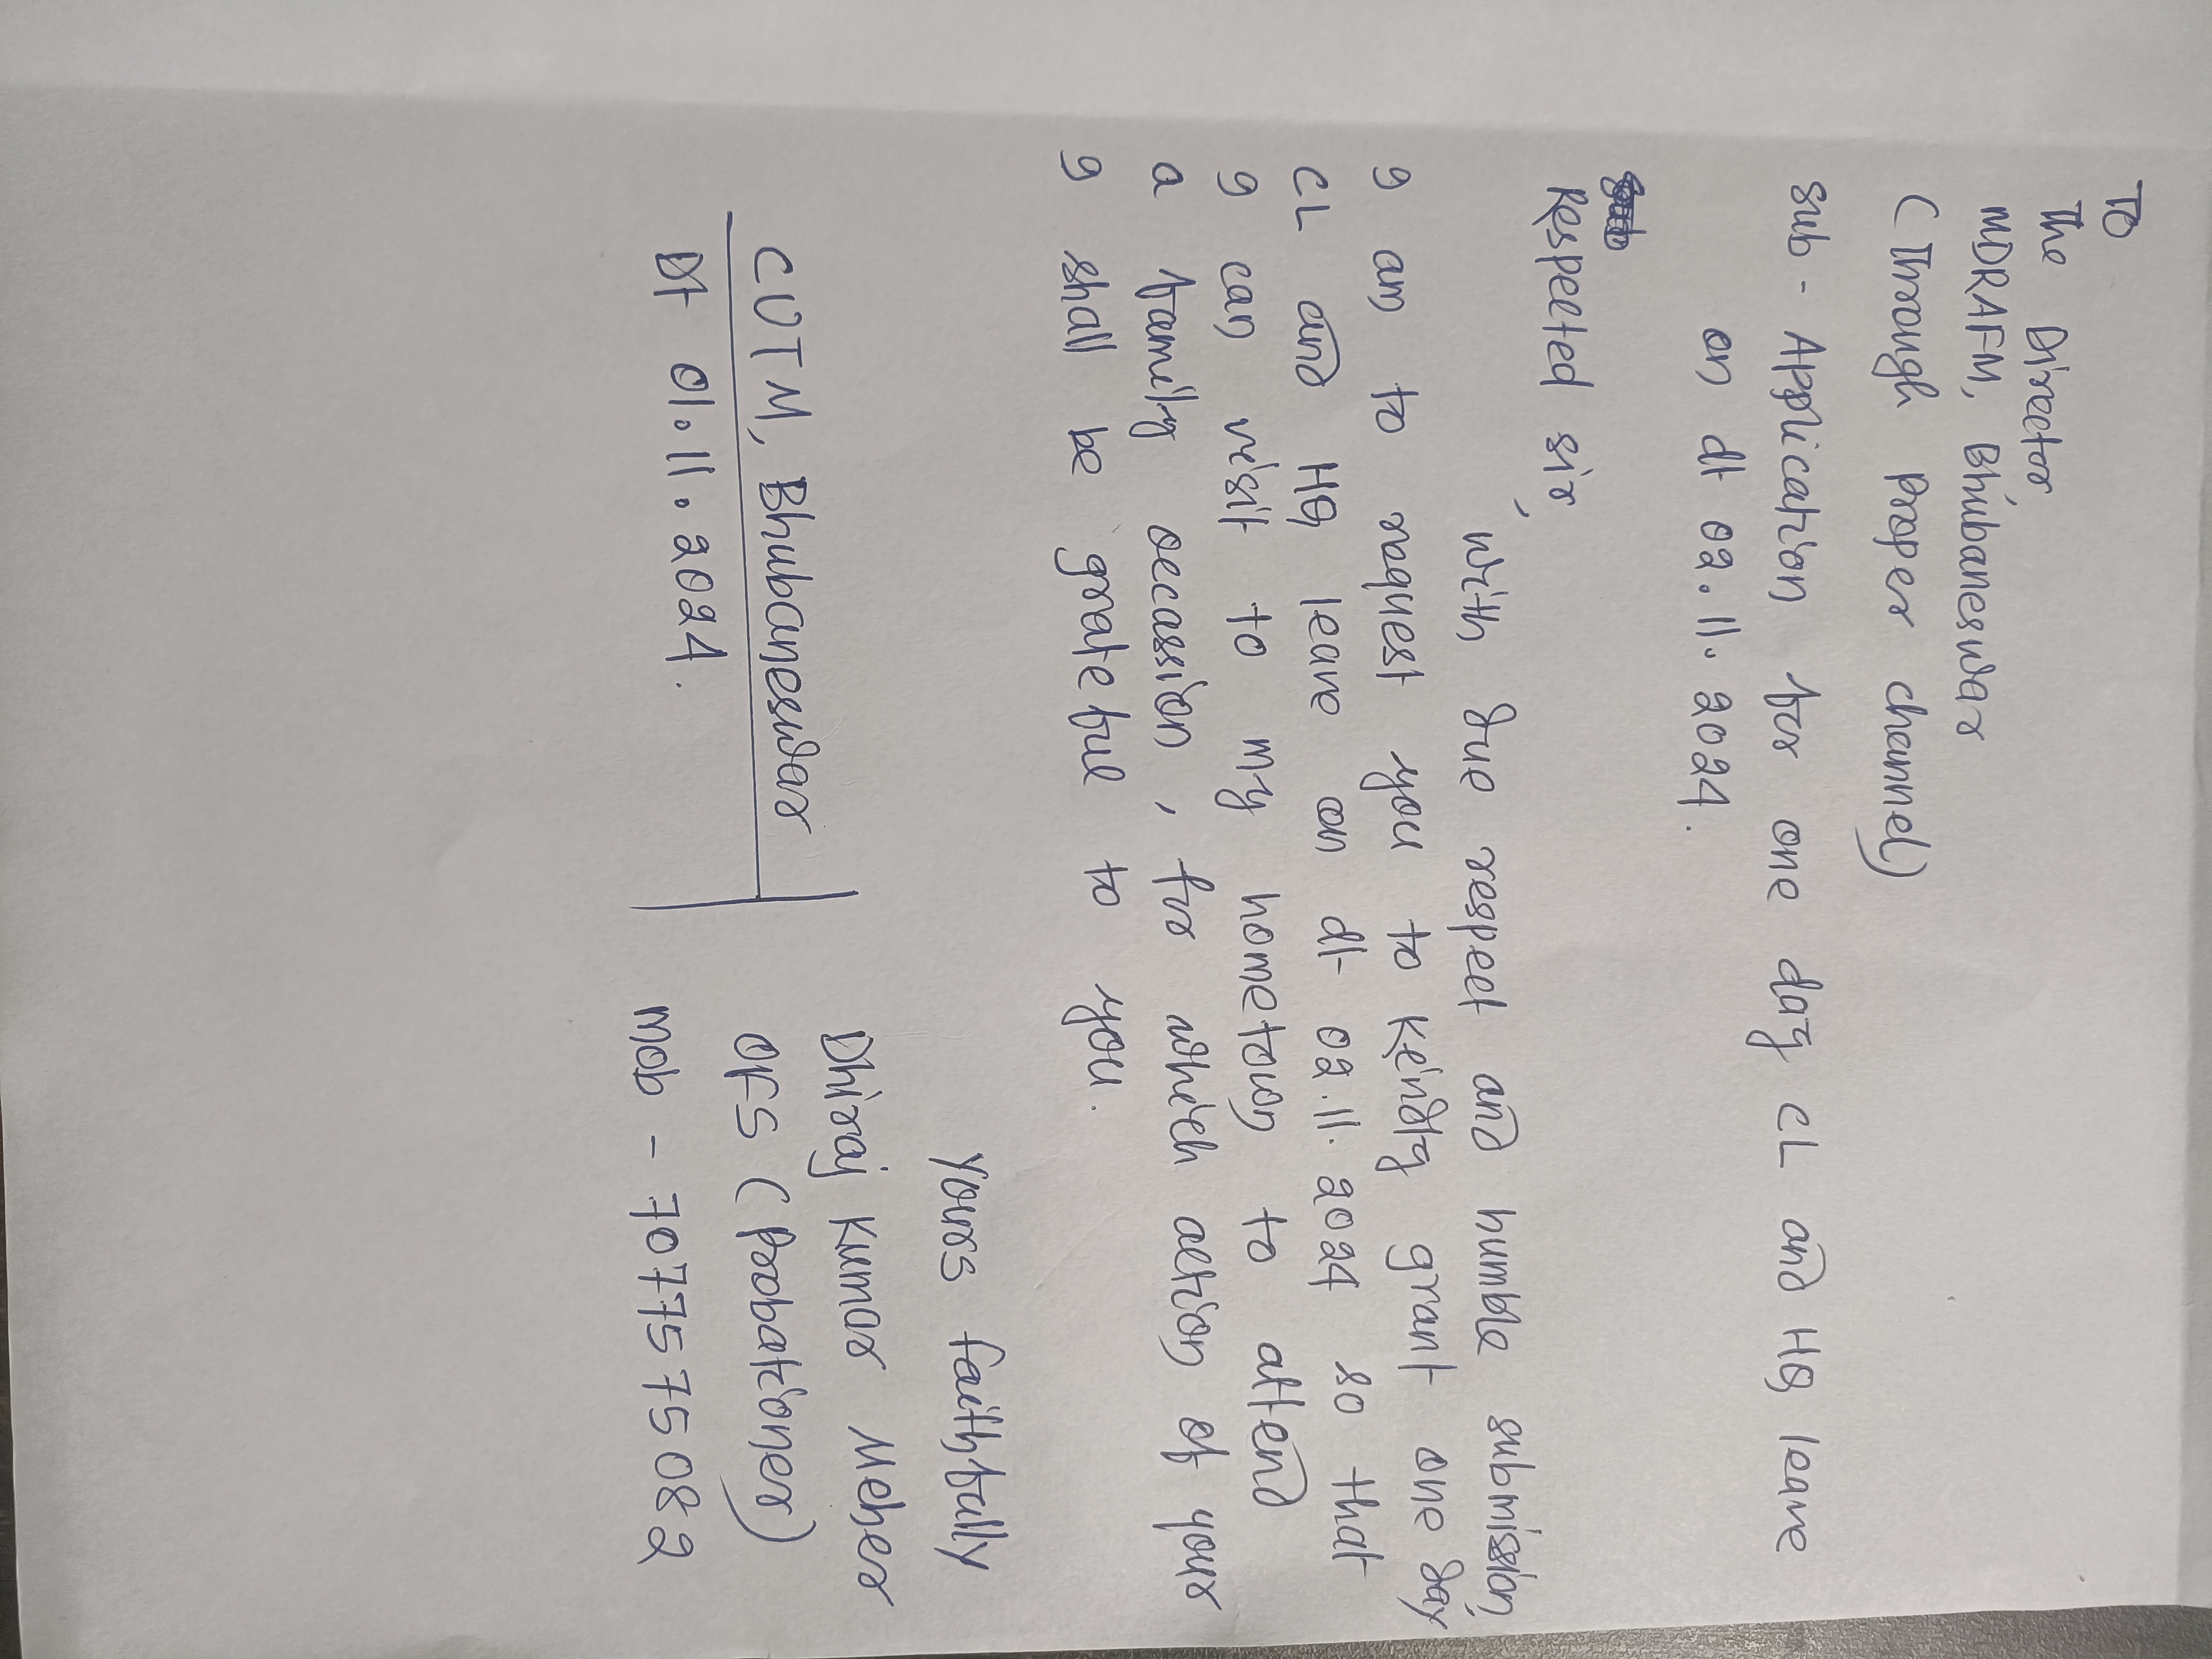 To
The Director
MDRAFM, Bhubaneswar
(Through Proper channel)
Sub - Application for one day CL and HQ leave
on dt 02.11.2024.
Respected sir,
With due respect and humble submission,
I am to request you to kindly grant one day
CL and HQ leave on dt 02.11.2024 so that
I can visit to my hometown to attend
a family occassion, for which action of your
I shall be grateful to you.
Yours faithfully
CUTM, Bhubaneswar
Dt 01.11.2024.
Dhiraj Kumar Meher
OFS (Probationer)
Mob - 7077575082